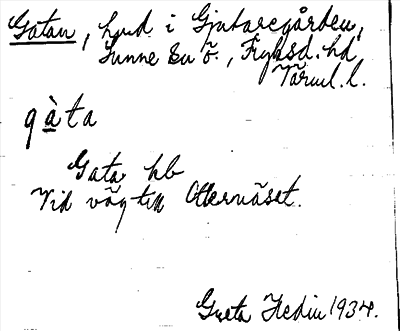 Gatan, hmd. i Gjutaregården,
Sunne sn ö., Fryksd. hd
Värml. l.
gàta
Gata hb
Vid väg till Otternäset.
Greta Hedin 1934.